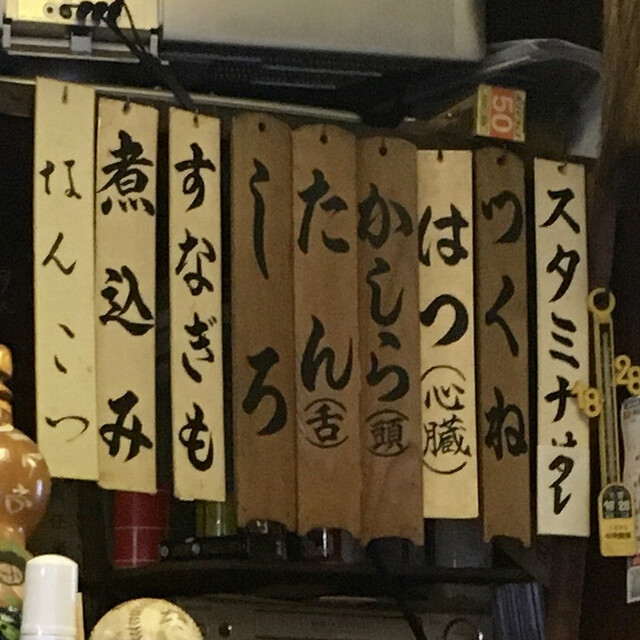 スタミナ
つくね
はつ(心臓)
かしら(頭)
たん(舌)
しろ
すなぎも
煮込み
なんこつ
50